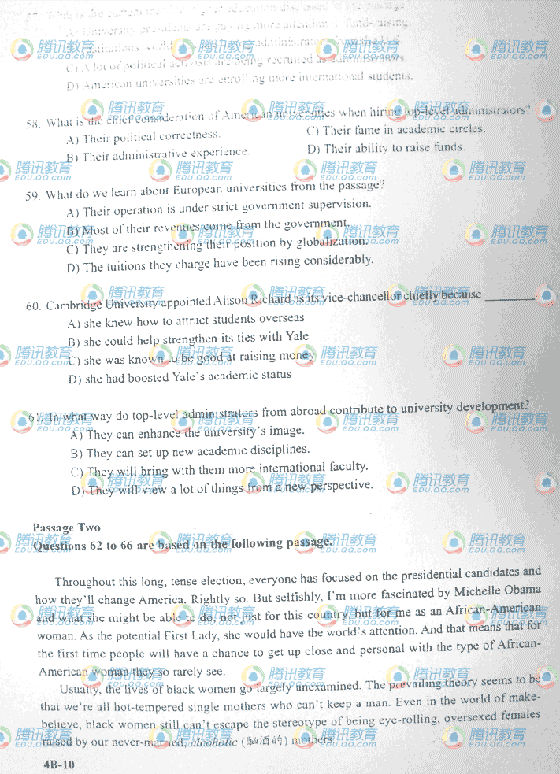 D) American universities are enrolling more international students.
58. What is the chief consideration of American universities when hiring top-level administrators?
A) Their political correctness.
C) Their fame in academic circles.
B) Their administrative experience.
D) Their ability to raise funds.
59. What do we learn about European universities from the passage?
A) Their operation is under strict government supervision.
B) Most of their revenues come from the government.
C) They are strengthening their position by globalization.
D) The tuitions they charge have been rising considerably.
60. Cambridge University appointed Alison Richard as its vice-chancellor chiefly because ________.
A) she knew how to attract students overseas
B) she could help strengthen its ties with Yale
C) she was known to be good at raising money
D) she had boosted Yale's academic status
61. In what way do top-level administrators from abroad contribute to university development?
A) They can enhance the university's image.
B) They can set up new academic disciplines.
C) They will bring with them more international faculty.
D) They will view a lot of things from a new perspective.
Passage Two
Questions 62 to 66 are based on the following passage.
Throughout this long, tense election, everyone has focused on the presidential candidates and
how they'll change America. Rightly so. But selfishly, I'm more fascinated by Michelle Obama
and what she might be able to do, not just for this country, but for me as an African-American
woman. As the potential First Lady, she would have the world's attention. And that means that for
the first time people will have a chance to get up close and personal with the type of African-
American woman they so rarely see.
Usually, the lives of black women go largely unexamined. The prevailing theory seems to be
that we're all hot-tempered single mothers who can't keep a man. Even in the world of make-
believe, black women still can't escape the stereotype of being eye-rolling, oversexed females
raised by our never-married, alcoholic (酗酒的) mothers.
4B-10
腾讯教育
EDU.QQ.COM